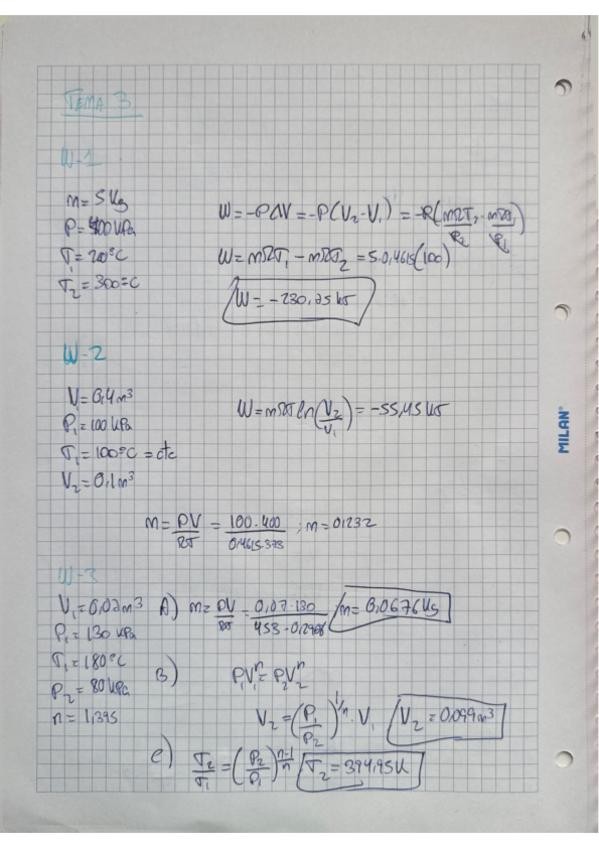 TEMA 3
W-1
m = 5 Kg
P = 400 kPa
T₁ = 200°C
T₂ = 300°C
W = -PΔV = -P(V₂-V₁) = -P(mRT₂/P₂ - mRT₁/P₁)
W = mRT₁ - mRT₂ = 5·0,4615(100)
W = -230,75 kJ
W-2
V₁ = 0,4 m³
P₁ = 100 kPa
T₁ = 100°C = cte
V₂ = 0,1 m³
W = mRT ln(V₂/V₁) = -55,45 kJ
m = PV/RT = 100·400/0,4615·373 ; m = 0,232
W-3
V₁ = 0,07 m³
P₁ = 130 kPa
T₁ = 180°C
P₂ = 80 kPa
n = 1,395
A) m = PV/RT = 0,07·130/453·0,2968 / m = 0,0676 Kg
B) P₁V₁ⁿ = P₂V₂ⁿ
V₂ = (P₁/P₂)^1/n · V₁ V₂ = 0,099 m³
C) T₂/T₁ = (P₂/P₁)^n-1/n T₂ = 394,95 K
MILAN